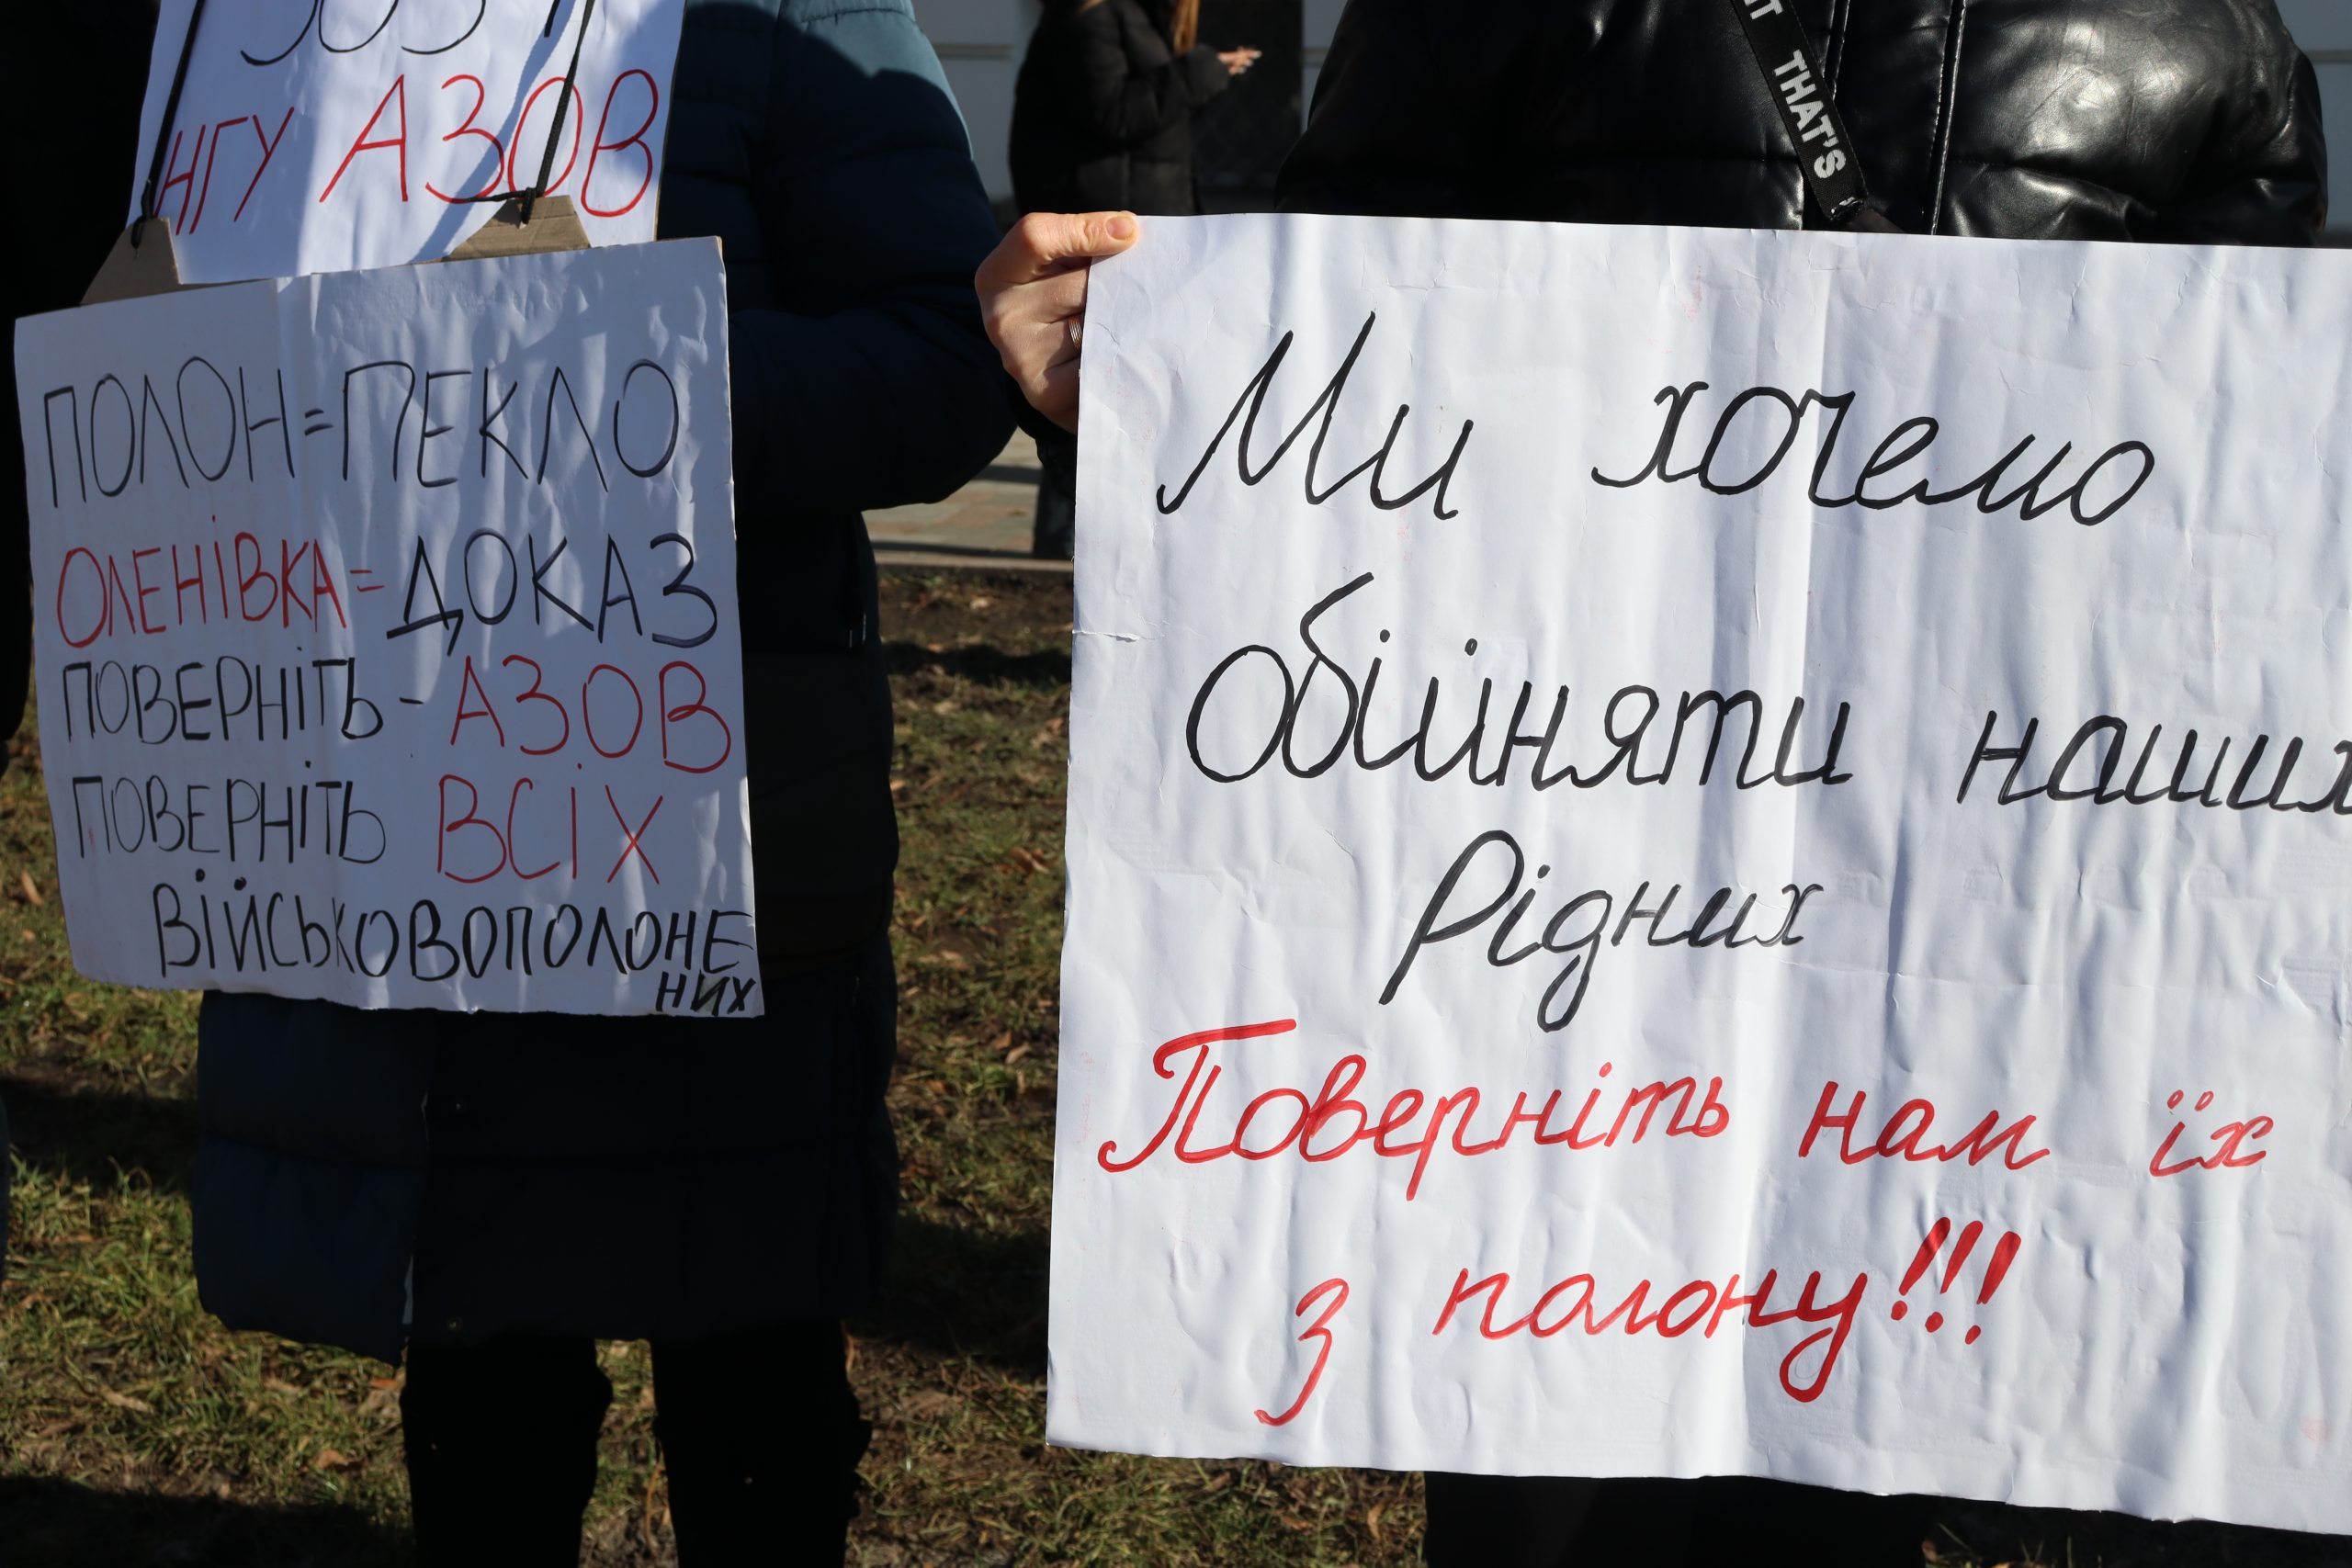 НГУ АЗОВ
ПОЛОН=ПЕКЛО
ОЛЕНІВКА=ДОКАЗ
ПОВЕРНІТЬ-АЗОВ
ПОВЕРНІТЬ ВСІХ
ВІЙСЬКОВОПОЛОНЕ
НИХ
THAT'S
Ми хочемо
обійняти наших
рідних
Повернiть нам їх
з полону!!!